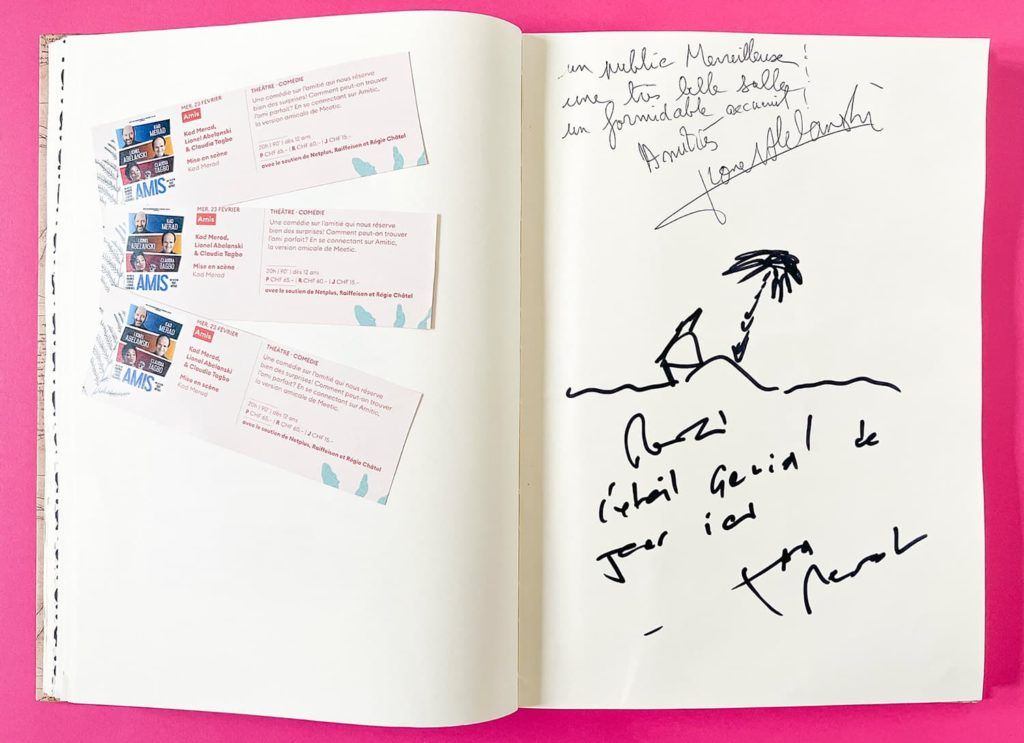 MER. 23 FÉVRIER
Amis
Kad Merad,
Lionel Abelanski
& Claudia Tagbo
Mise en scène
Kad Merad
KAD
MERAD
LIONEL
ABELANSKI
CLAUDIA
TAGBO
AMIS
THÉÂTRE · COMÉDIE
Une comédie sur l'amitié qui nous réserve
bien des surprises! Comment peut-on trouver
l'ami parfait? En se connectant sur Amitic,
la version amicale de Meetic.
20h | 90' | dès 12 ans
P CHF 65.- | R CHF 60.- | J CHF 15.-
avec le soutien de Netplus, Raiffeisen et Régie Châtel
MER. 23 FÉVRIER
Amis
Kad Merad,
Lionel Abelanski
& Claudia Tagbo
Mise en scène
Kad Merad
KAD
MERAD
LIONEL
ABELANSKI
CLAUDIA
TAGBO
AMIS
THÉÂTRE · COMÉDIE
Une comédie sur l'amitié qui nous réserve
bien des surprises! Comment peut-on trouver
l'ami parfait? En se connectant sur Amitic,
la version amicale de Meetic.
20h | 90' | dès 12 ans
P CHF 65.- | R CHF 60.- | J CHF 15.-
avec le soutien de Netplus, Raiffeisen et Régie Châtel
MER. 23 FÉVRIER
Amis
Kad Merad,
Lionel Abelanski
& Claudia Tagbo
Mise en scène
Kad Merad
KAD
MERAD
LIONEL
ABELANSKI
CLAUDIA
TAGBO
AMIS
THÉÂTRE · COMÉDIE
Une comédie sur l'amitié qui nous réserve
bien des surprises! Comment peut-on trouver
l'ami parfait? En se connectant sur Amitic,
la version amicale de Meetic.
20h | 90' | dès 12 ans
P CHF 65.- | R CHF 60.- | J CHF 15.-
avec le soutien de Netplus, Raiffeisen et Régie Châtel
un public Merveilleux !
une très belle salle !
un formidable accueil !
Amitiés
Abelanski
Merci
c'était Genial de
jouer ici
Kad Merad